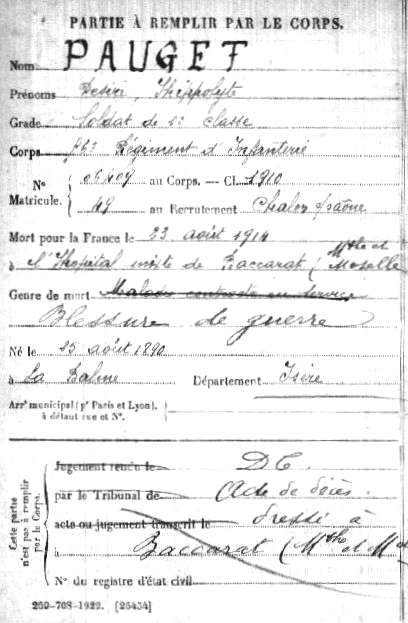 PARTIE À REMPLIR PAR LE CORPS.
Nom PAUGET
Prénoms Désiré, Hippolyte
Grade Soldat de 2e classe
Corps Régiment d'Infanterie
Nº au Corps. — Cl. 1910
Matricule. 49 au Recrutement Chalon s/Saône
Mort pour la France le 23 août 1914
à l'Hôpital mixte de Baccarat (Mthe et Moselle
Genre de mort Maladie contractée en service
Blessure de guerre
Né le 15 août 1890
à La Balme Département Isère
Arrᵗ municipal (pʳ Paris et Lyon),
à défaut rue et Nº.
Cette partie
n'est pas à remplir
par le Corps.
Jugement rendu le DC.
par le Tribunal de Acte de décès
acte ou jugement transcrit le dressé à
à Baccarat (Mthe et M
Nº du registre d'état civil
260-708-1922. [26434]